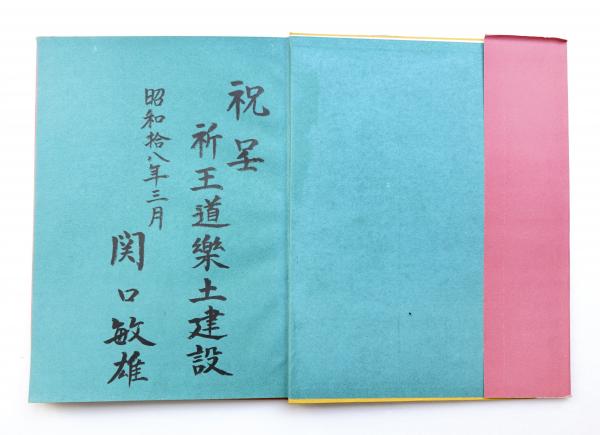 祝呈
祈王道樂土建設
昭和拾八年三月
関口敏雄